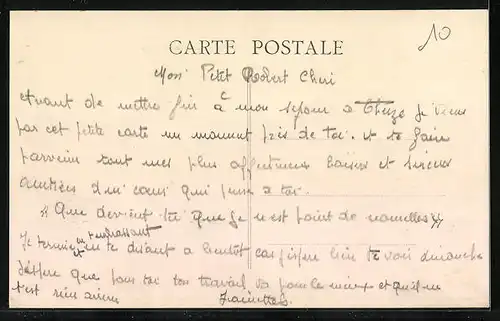 10
CARTE POSTALE
Mon Petit Robert Cheri
avant de mettre fin à mon sejour a je viens
par cet petite carte un moment près de toi. et te faire
parvenir tout mes plus affectueux baisers et sinceres
amitiées d'un cœur qui pense a toi.
" Que devient tu que je n'est point de nouvelles "
Je termine en t'embrassant
et en te disant a bientot car j'espere bien te voir dimanche
J'espere que pour toi ton travail va pour le mieux et qu'il ne
t'est rien arrivé